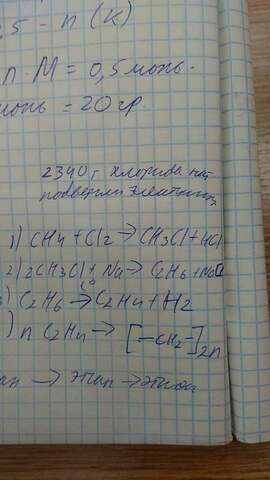 ,5 - n (K)
n · M = 0,5 моль ·
моль = 20 гр.
2340 г хлорида нат
подвергли электролизу
1) CH4 + Cl2 → CH3Cl + HCl
2) 2CH3Cl + Na → C2H6 + NaCl
) C2H6 → C2H4 + H2
) n C2H4 → [-CH2-]2n
ан → этан → этен